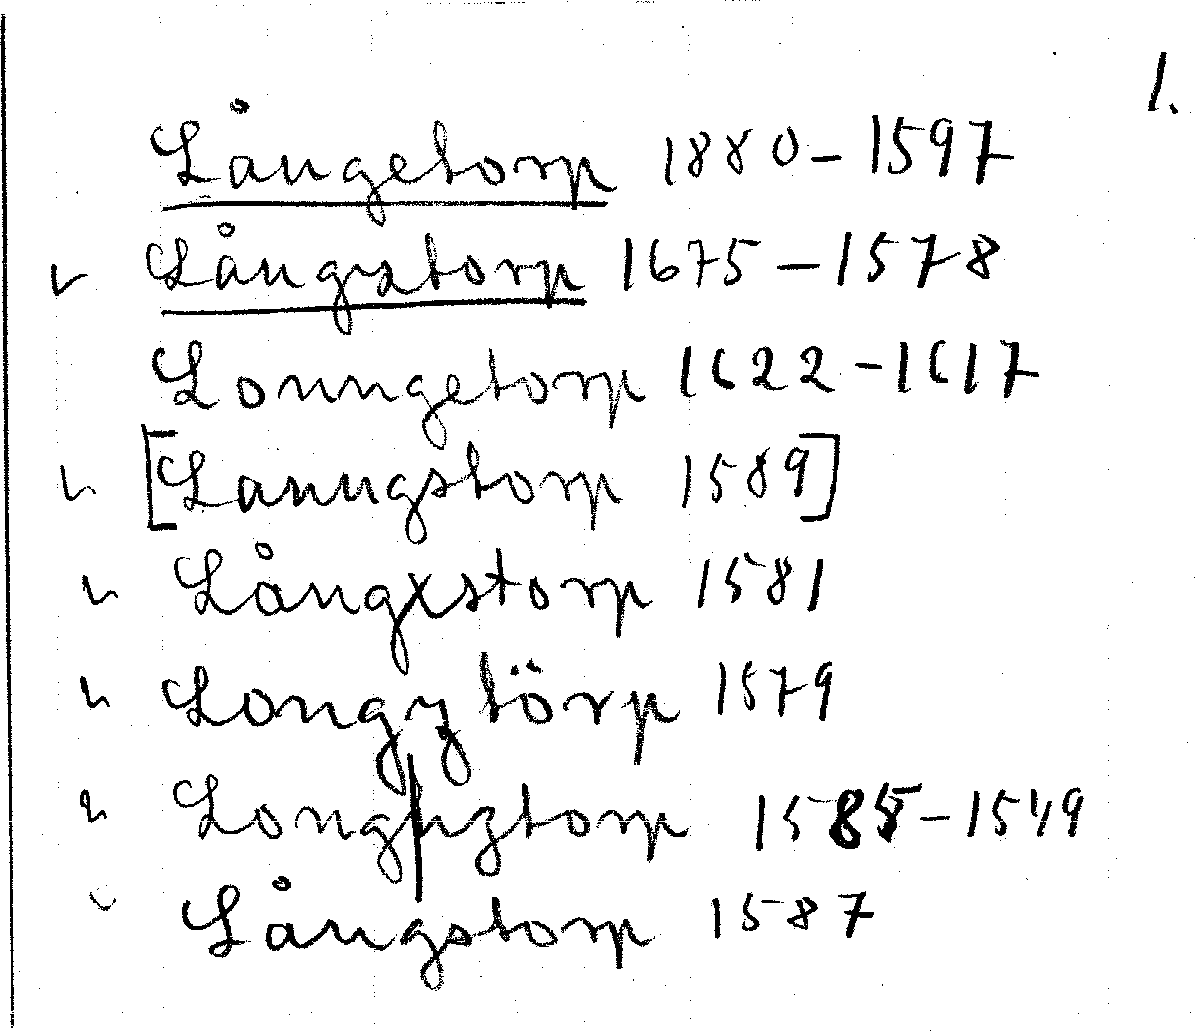 1.
Långetorp 1880-1597
Långztorp 1675-1578
Lonngetorp 1622-1617
[Lanngstorp 1589]
Långxstorp 1581
Longztörp 1579
Longhztorp 1585-1549
Långstorp 1587